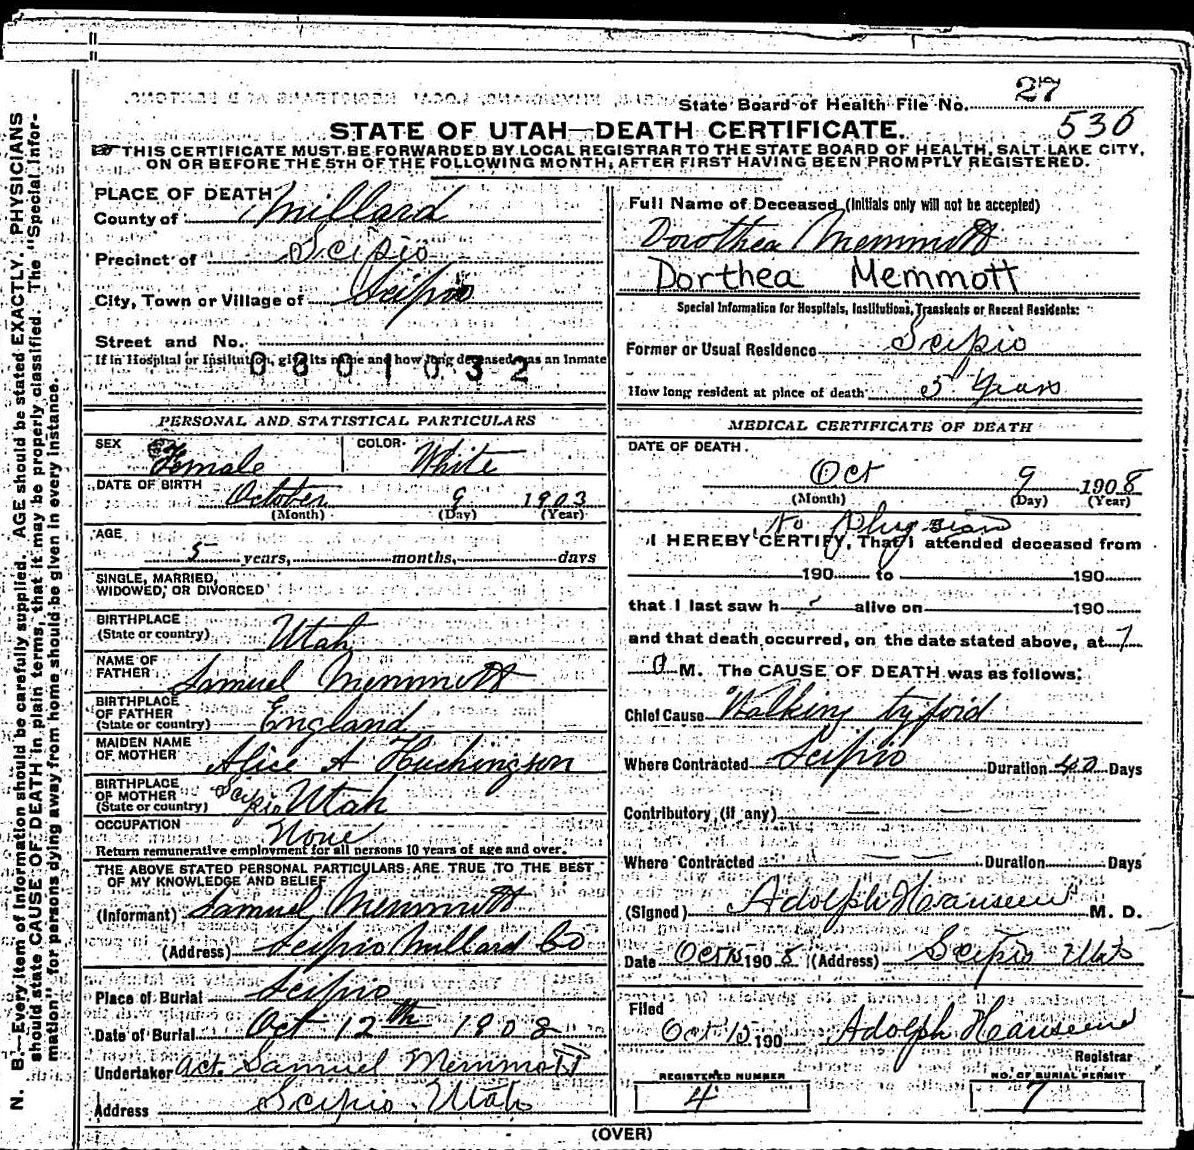 State Board of Health File No. 27
530
STATE OF UTAH—DEATH CERTIFICATE.
THIS CERTIFICATE MUST BE FORWARDED BY LOCAL REGISTRAR TO THE STATE BOARD OF HEALTH, SALT LAKE CITY,
ON OR BEFORE THE 5TH OF THE FOLLOWING MONTH, AFTER FIRST HAVING BEEN PROMPTLY REGISTERED.
N. B.—Every item of information should be carefully supplied. AGE should be stated EXACTLY. PHYSICIANS
should state CAUSE OF DEATH in plain terms, that it may be properly classified. The "Special Infor-
mation" for persons dying away from home should be given in every instance.
PLACE OF DEATH
County of Millard
Precinct of Scipio
City, Town or Village of Scipio
Street and No.
If in Hospital or Institution, give its name and how long deceased was an Inmate
0601032
PERSONAL AND STATISTICAL PARTICULARS
SEX Female COLOR White
DATE OF BIRTH October 9 1903
(Month) (Day) (Year)
AGE
5 years, months, days
SINGLE, MARRIED,
WIDOWED, OR DIVORCED
BIRTHPLACE
(State or country) Utah
NAME OF
FATHER Samuel Memmott
BIRTHPLACE
OF FATHER
(State or country) England
MAIDEN NAME
OF MOTHER Alice A Huchingson
BIRTHPLACE
OF MOTHER
(State or country) Scipio Utah
OCCUPATION None
Return remunerative employment for all persons 10 years of age and over.
THE ABOVE STATED PERSONAL PARTICULARS ARE TRUE TO THE BEST
OF MY KNOWLEDGE AND BELIEF
(Informant) Samuel Memmott
(Address) Scipio Millard Co
Place of Burial Scipio
Date of Burial Oct 12th 1908
Undertaker Act. Samuel Memmott
Address Scipio Utah
Full Name of Deceased (Initials only will not be accepted)
Dorothea Memmott
Dorthea Memmott
Special Information for Hospitals, Institutions, Transients or Recent Residents:
Former or Usual Residence Scipio
How long resident at place of death 5 Years
MEDICAL CERTIFICATE OF DEATH
DATE OF DEATH
Oct 9 1908
(Month) (Day) (Year)
No Physian
I HEREBY CERTIFY, That I attended deceased from
190 to 190
that I last saw h alive on 190
and that death occurred, on the date stated above, at 7
M. The CAUSE OF DEATH was as follows:
Chief Cause Walking tyfoid
Where Contracted Scipio Duration 40 Days
Contributory (if any)
Where Contracted Duration Days
(Signed) Adolph Hansen M. D.
Date Oct 15 1908 (Address) Scipio Utah
Filed
Oct 15 190 Adolph Hansen
Registrar
REGISTERED NUMBER
4
NO. OF BURIAL PERMIT
7
(OVER)